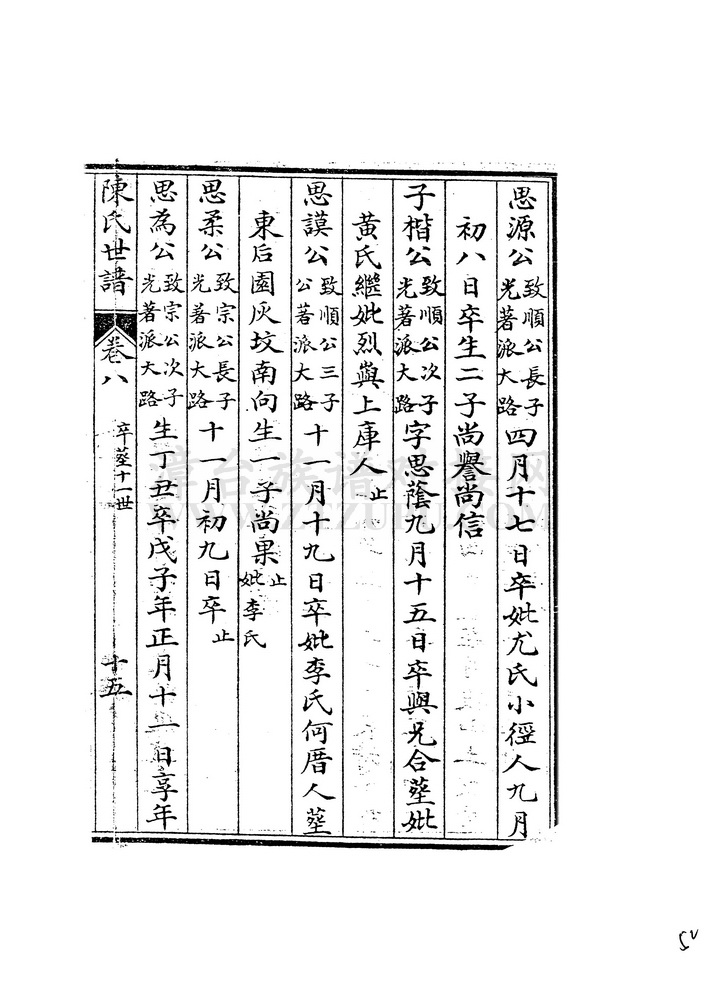 思源公致順公長子光著派大路四月十七日卒妣尤氏小徑人九月
初八日卒生二子尚譽尚信
子楷公致順公次子光著派大路字思蔭九月十五日卒與兄合塟妣
黃氏繼妣烈與上庫人止
思謨公致順公三子公著派大路十一月十九日卒妣李氏何厝人塟
東后園灰坟南向生一子尚果止妣李氏
思柔公致宗公長子光著派大路十一月初九日卒止
思為公致宗公次子光著派大路生丁丑卒戊子年正月十一日享年
陳氏世譜 卷八 卒塟十一世 十五
漳台族谱对接网
WWW.ZTZUPU.COM